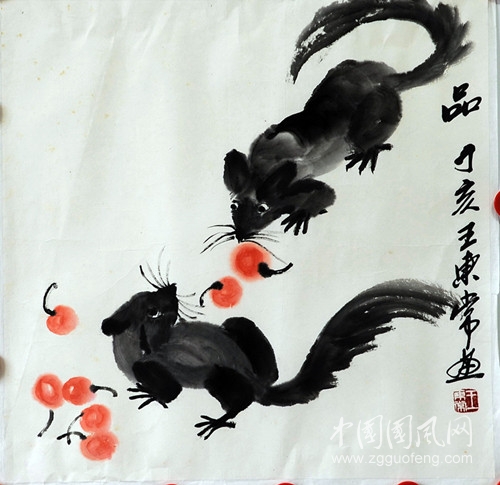 品 丁亥王東常画
中国国风网
www.zgguofeng.com